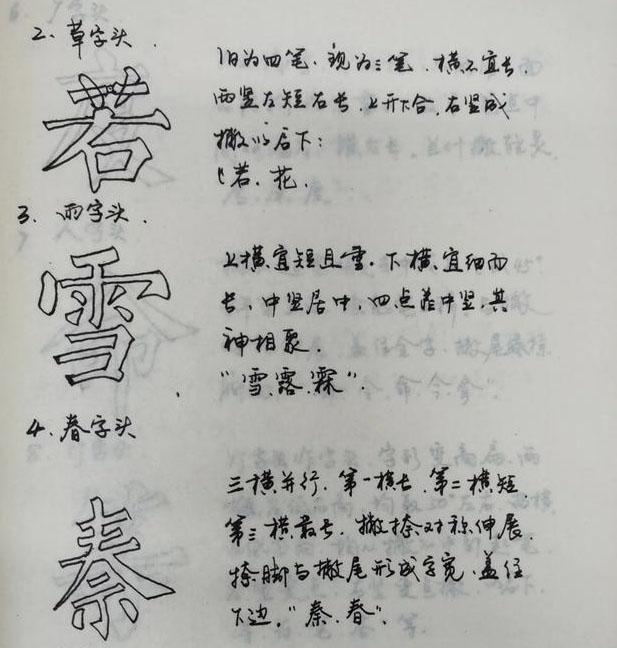 2. 草字头.
若
旧为四笔.现为三笔.横不宜长.
两竖左短右长.上开下合.右竖成
撇必后下:
若.花.
3. 雨字头.
雪
上横宜短且重.下横宜细而
长.中竖居中.四点靠中竖.其
神相聚.
"雪.露.霖".
4. 春字头
秦
三横并行.第一横长.第二横短.
第三横最长.撇捺对称伸展.
捺脚与撇尾形成字宽.盖住
下边."秦.春".